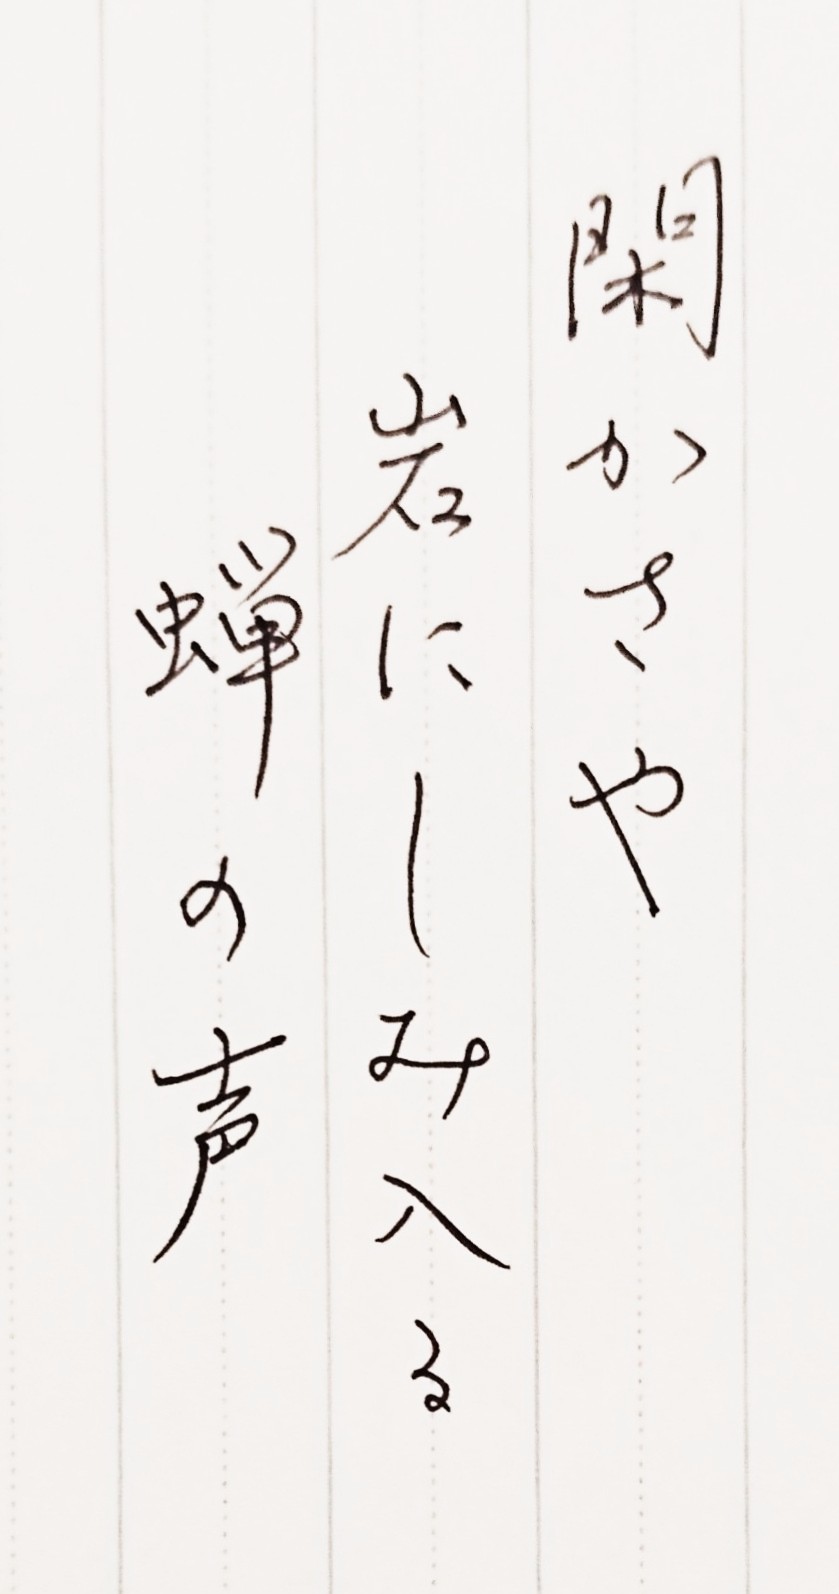 閑かさや
岩にしみ入る
蝉の声